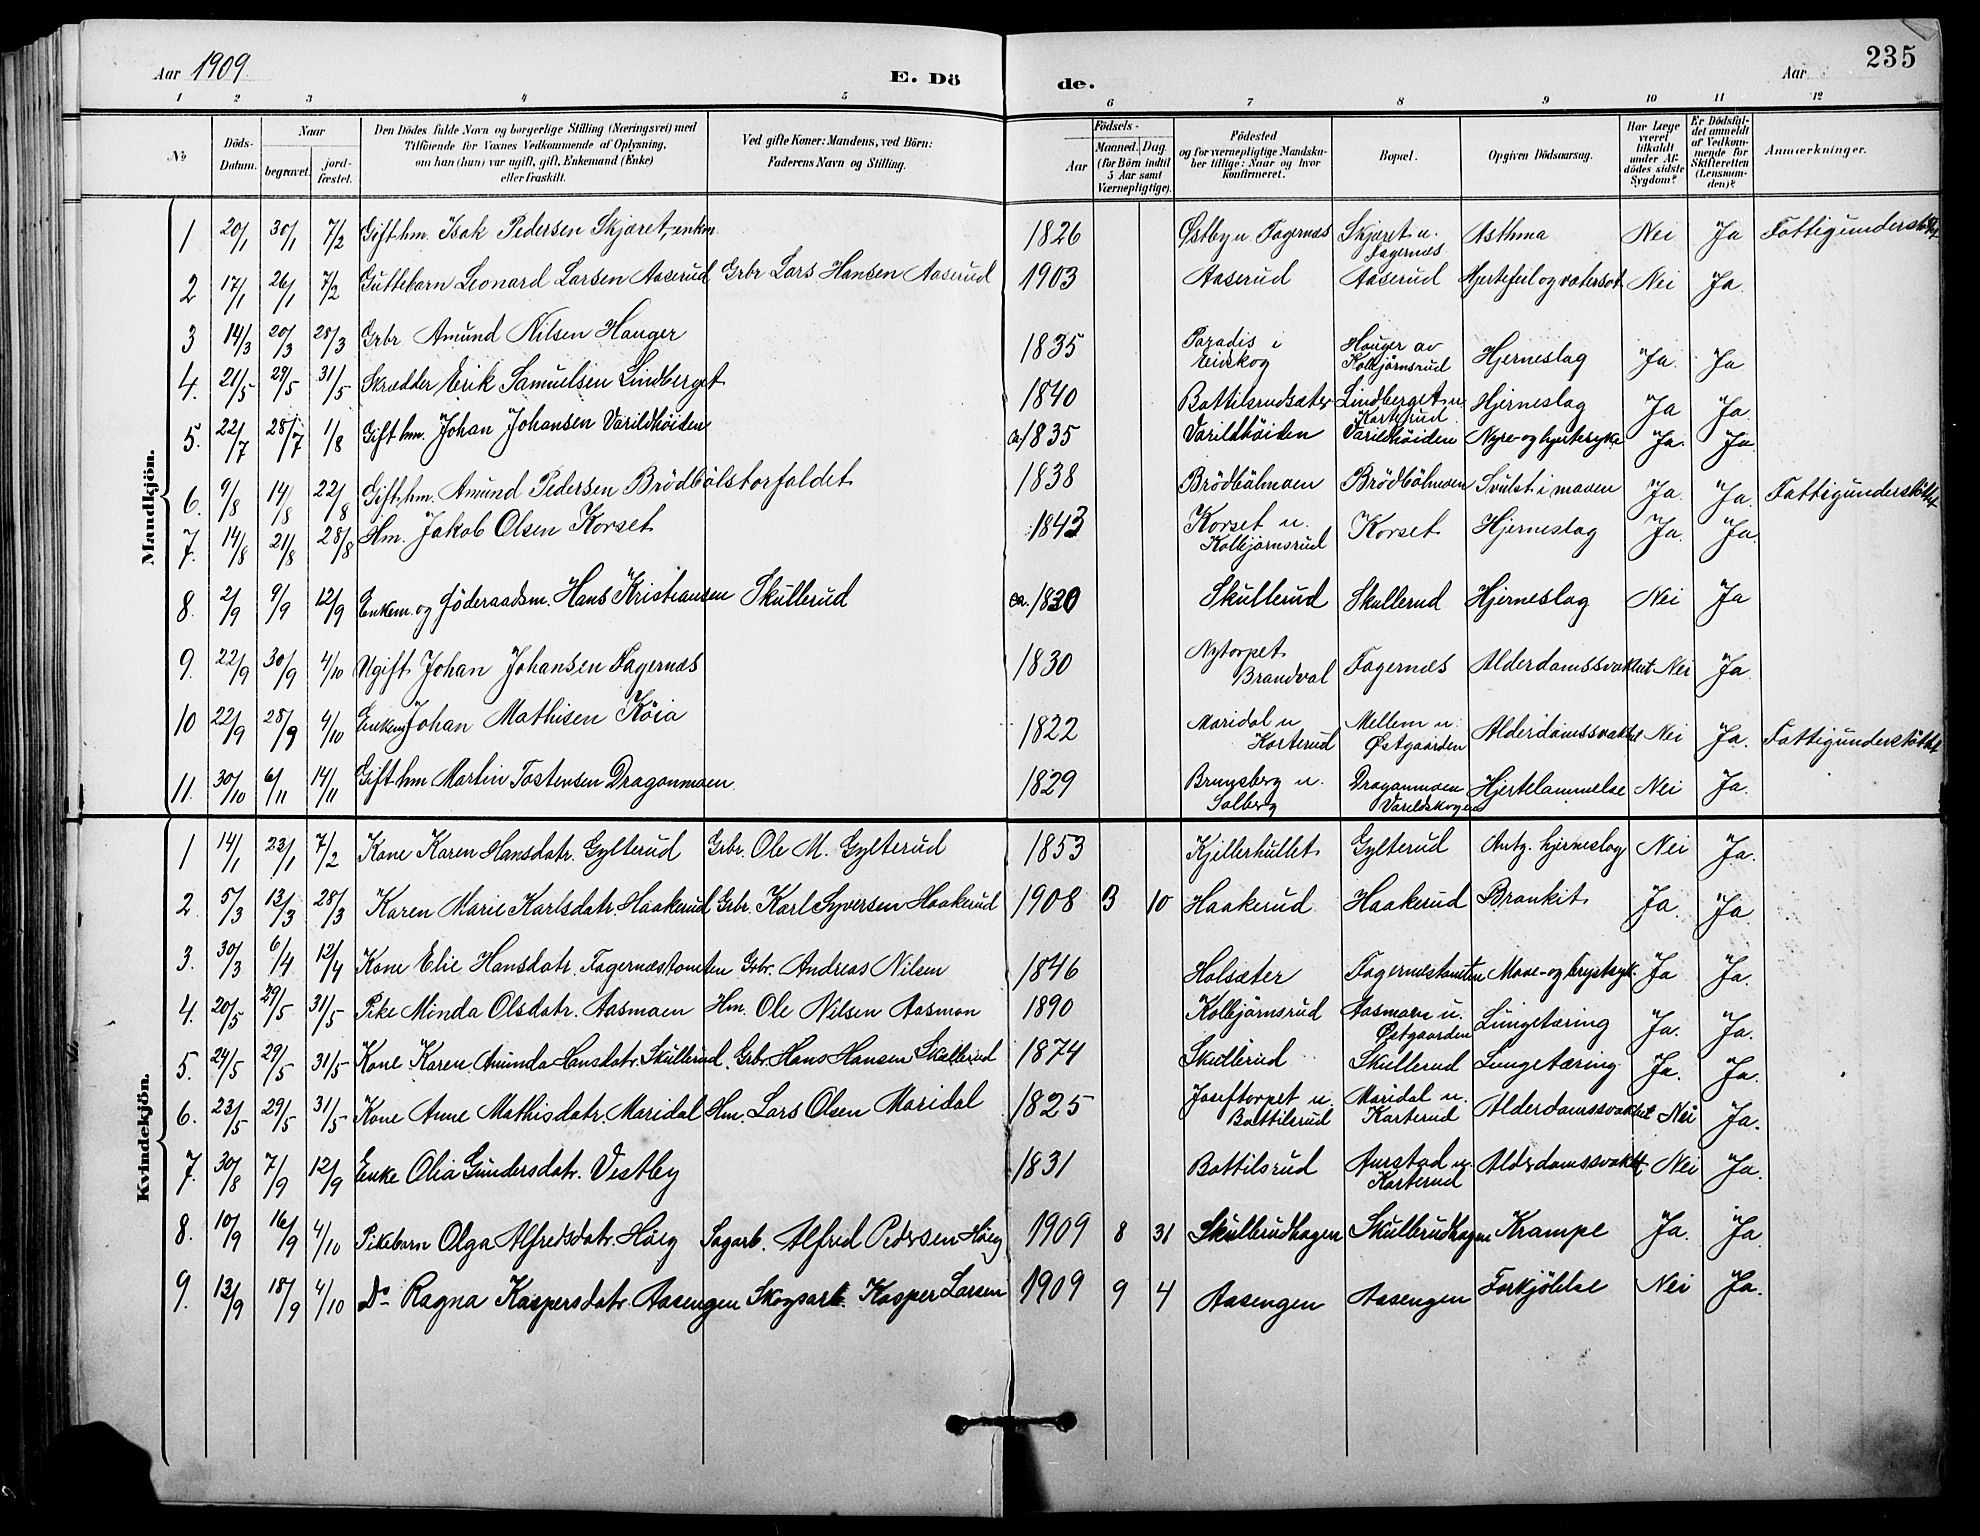 235
Aar 1909. E. Dö de. Aar
1 2 3 4 5 6 7 8 9 10 11 12
№ Döds-Datum. Naar begravet. jordfæstet. Den Dödes fulde Navn og borgerlige Stilling (Næringsvei) med Tilföiende for Voxnes Vedkommende af Oplysning, om han (hun) var ugift, gift, Enkemand (Enke) eller fraskilt. Ved gifte Koner: Mandens, ved Börn: Faderens Navn og Stilling. Födsels- Aar Maaned. Dag. (for Börn indtil 5 Aar samt Værnepligtige). Födested og for værnepligtige Mandskaber tillige: Naar og hvor Konfirmeret. Bopæl. Opgiven Dödsaarsag. Har Læge været tilkaldt under Afdödes sidste Sygdom? Er Dödsfaldet anmeldt af Vedkommende for Skifteretten (Lensmanden)? Anmærkninger.
Mandkjön.
1 20/1 30/1 7/2 Gift hm. Isak Pedersen Skjæret, enkm. 1826 Østby u Fagernæs Skjæret u. Fagernæs Asthma Nei Ja Fattigunderstöttet
2 17/1 26/1 7/2 Guttebarn Leonard Larsen Aaserud Grbr Lars Hansen Aaserud 1903 Aaserud Aaserud Hjertefeil og vatersot Nei Ja.
3 14/3 20/3 28/3 Grbr Amund Nilsen Hauger 1835 Paradis i Eidskog Hauger av Kolbjörnsrud Hjerneslag Ja. Ja
4. 21/5 29/5 31/5 Skrædder Erik Samuelsen Lindberget 1840 Battilsrudsæter Lindberget u Karterud Hjerneslag Ja Ja
5. 22/7 28/7 1/8 Gift hm. Johan Johansen Varildhöiden ca 1835 Varildhöiden Varildhöiden Nyre- og hjertesyke Ja. Ja.
6. 9/8 14/8 22/8 Gift hm. Amund Pedersen Brödbölstorfaldet 1838 Brödbölmoen Brödbölmoen Svulst i maven Ja. Ja. Fattigunderstöttet
7. 14/8 21/8 28/8 Hm. Jakob Olsen Korset 1843 Korset u. Kolbjörnsrud Korset Hjerneslag Ja. Ja.
8. 2/9 9/9 12/9 Enkem. og föderaadsm. Hans Kristiansen Skullerud ca. 1830 Skullerud Skullerud Hjerneslag Nei Ja
9. 22/9 30/9 4/10 Ugift Johan Johansen Fagernæs 1830 Nytorpet Brandval Fagernæs Alderdomssvakhet Nei Ja
10 22/9 28/9 4/10 Enkem Johan Mathisen Köia 1822 Maridal u Karterud Mellem u. Østgaarden Alderdomssvakhet Nei Ja. Fattigunderstöttet
11. 30/10 6/11 14/11 Gift hm Martin Tostensen Dragonmoen. 1829 Brunsberg u. Solberg Dragonmoen Varildskogen Hjertelammelse Nei Ja.
Kvindekjön.
1 14/1 23/1 7/2 Kone Karen Hansdatr. Gylterud Grbr. Ole M. Gylterud 1853 Kjellerhullet Gylterud Antg. hjerneslag Nei Ja.
2. 5/3 13/3 28/3 Karen Marie Karlsdatr. Haakerud Grbr. Karl Syversen Haakerud 1908 3 10 Haakerud Haakerud Bronkit Ja. Ja
3. 30/3 6/4 12/4 Kone Elie Hansdatr. Fagernæstomten Grbr. Andreas Nilsen 1846 Holsæter Fagernæstomten Mave- og brystsyk. Ja Ja.
4. 20/5 29/5 31/5 Pike Minda Olsdatr. Aasmoen Hm. Ole Nilsen Aasmoen 1890 Kolbjörnsrud Aasmoen u. Østgaarden Lungetæring Ja. Ja.
5. 24/5 29/5 31/5 Kone Karen Aminda Hansdatr. Skullerud. Grbr. Hans Hansen Skullerud 1874 Skullerud Skullerud Lungetæring Ja. Ja.
6. 23/5 29/5 31/5 Kone Anne Mathisdatr. Maridal Hm. Lars Olsen Maridal 1825 Joseftorpet u Battilsrud Maridal u. Karterud Alderdomssvakhet Nei Ja.
7. 30/8 7/9 12/9 Enke Olia Gundersdatr. Vestby 1831 Battilsrud Aurstad u. Karterud Alderdomssvakhet Nei Ja.
8. 10/9 16/9 4/10 Pikebarn Olga Alfredsdatr. Höeg Sagarb. Alfred Pedersen Höeg 1909 8 31 Skullerudhagen Skullerudhagen Krampe Ja. Ja
9. 13/9 18/9 4/10 Do Ragna Kaspersdatr. Aasengen Skogsarb. Kasper Larsen 1909 9 4 Aasengen Aasengen Forkjölelse Nei Ja.